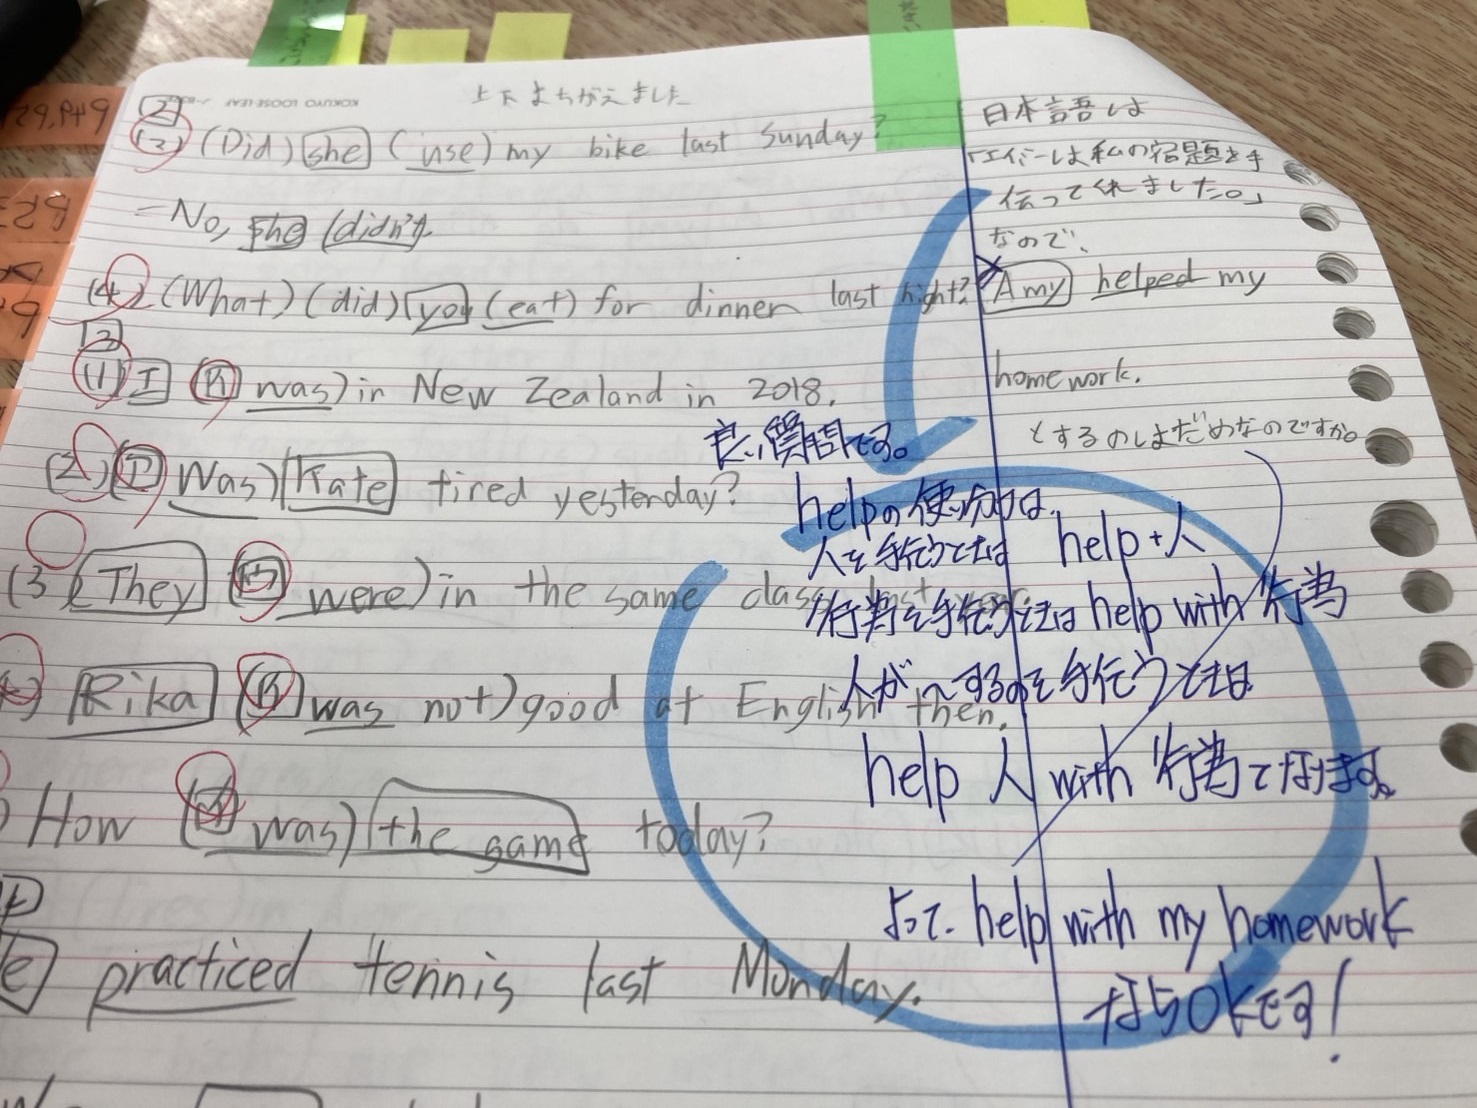 上下まちがえました
KOKUYO LOOSE-LEAF
2
(3) (Did) she (use) my bike last Sunday?
－No, she (didn't).
(4) (What) (did) you (eat) for dinner last night?
3
(1) I (was) in New Zealand in 2018.
(2) (Was) Kate tired yesterday?
(3) They (were) in the same class last year.
Rika (was not) good at English then.
How (was) the game today?
practiced tennis last Monday.
日本語は
「エイミーは私の宿題を手
伝ってくれました。」
なので、
Amy helped my
homework.
とするのはだめなのですか。
良い質問です。
helpの使い方は、
人を手伝うときは help+人
行為を手伝うときは help with 行為
人が〜するのを手伝うときは
help 人 with 行為 となります。
よって、help with my homework
ならOKです!